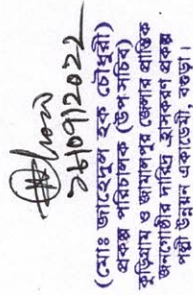 ২৮/০৭/2022
(মোঃ জাহেদুল হক চৌধুরী)
প্রকল্প পরিচালক (উপসচিব)
কুড়িগ্রাম ও জামালপুর জেলার প্রান্তিক
জনগোষ্ঠীর দারিদ্র হ্রাসকরণ প্রকল্প
পল্লী উন্নয়ন একাডেমী, বগুড়া।